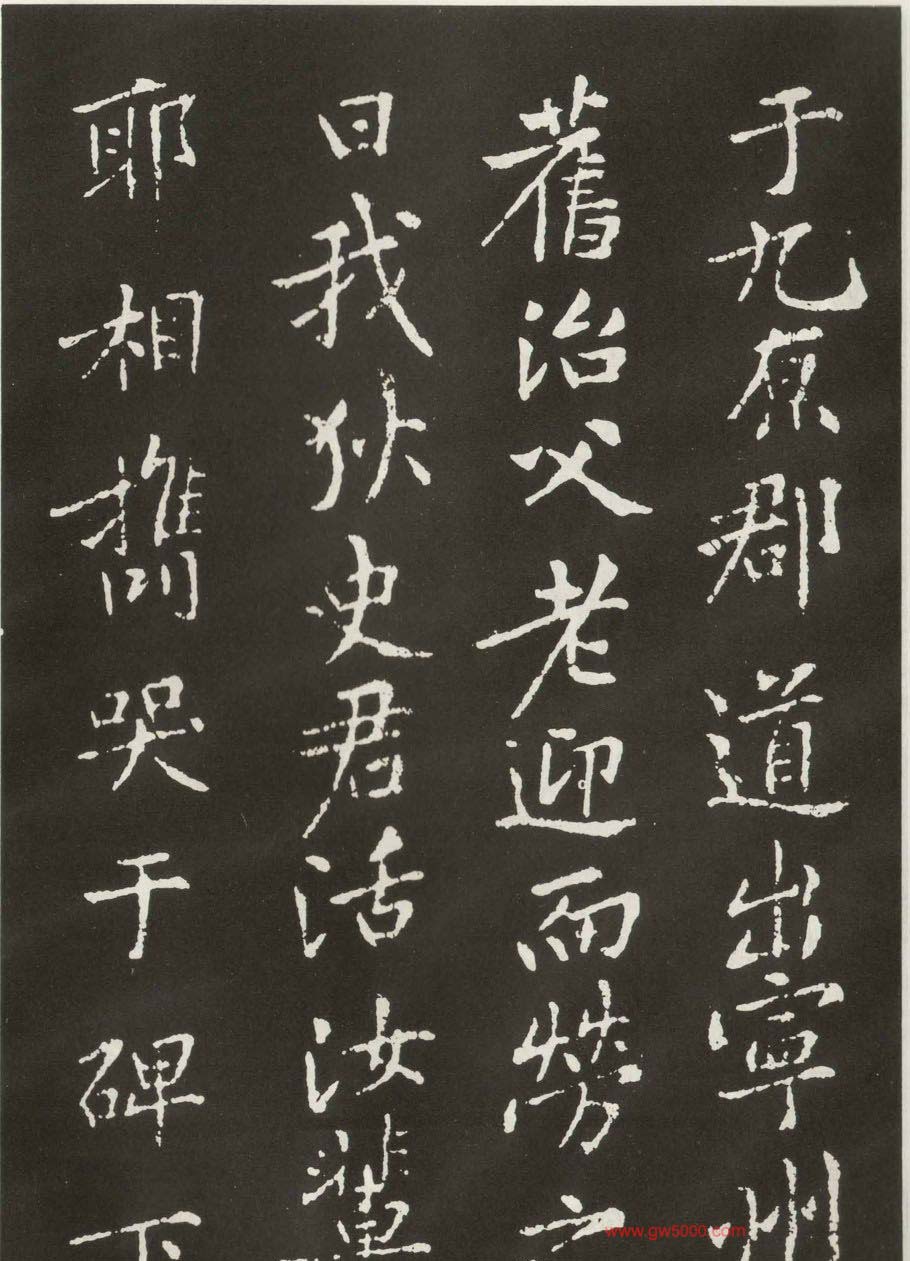 于九原郡道出寧州
舊治父老迎而勞之
曰我狄史君活汝輩
耶相攜哭于碑下
www.gw5000.com